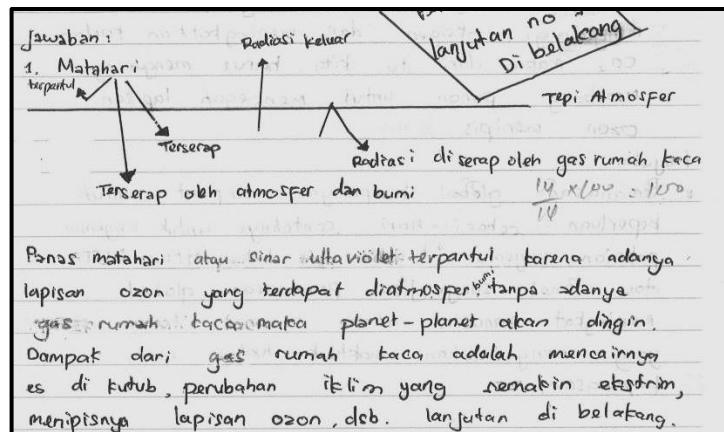 Jawaban :
lanjutan no
Di belakang
1. Matahari
Radiasi keluar
terpantul
Tepi Atmosfer
Terserap
Radiasi diserap oleh gas rumah kaca
Terserap oleh atmosfer dan bumi
14/14 x 100 = 100
Panas matahari atau sinar ultaviolet terpantul karena adanya
lapisan ozon yang terdapat diatmosper bumi, tanpa adanya
gas rumah kaca maka planet-planet akan dingin.
Dampak dari gas rumah kaca adalah mencairnya
es di kutub, perubahan iklim yang semakin ekstrim,
menipisnya lapisan ozon, dsb. lanjutan di belakang.